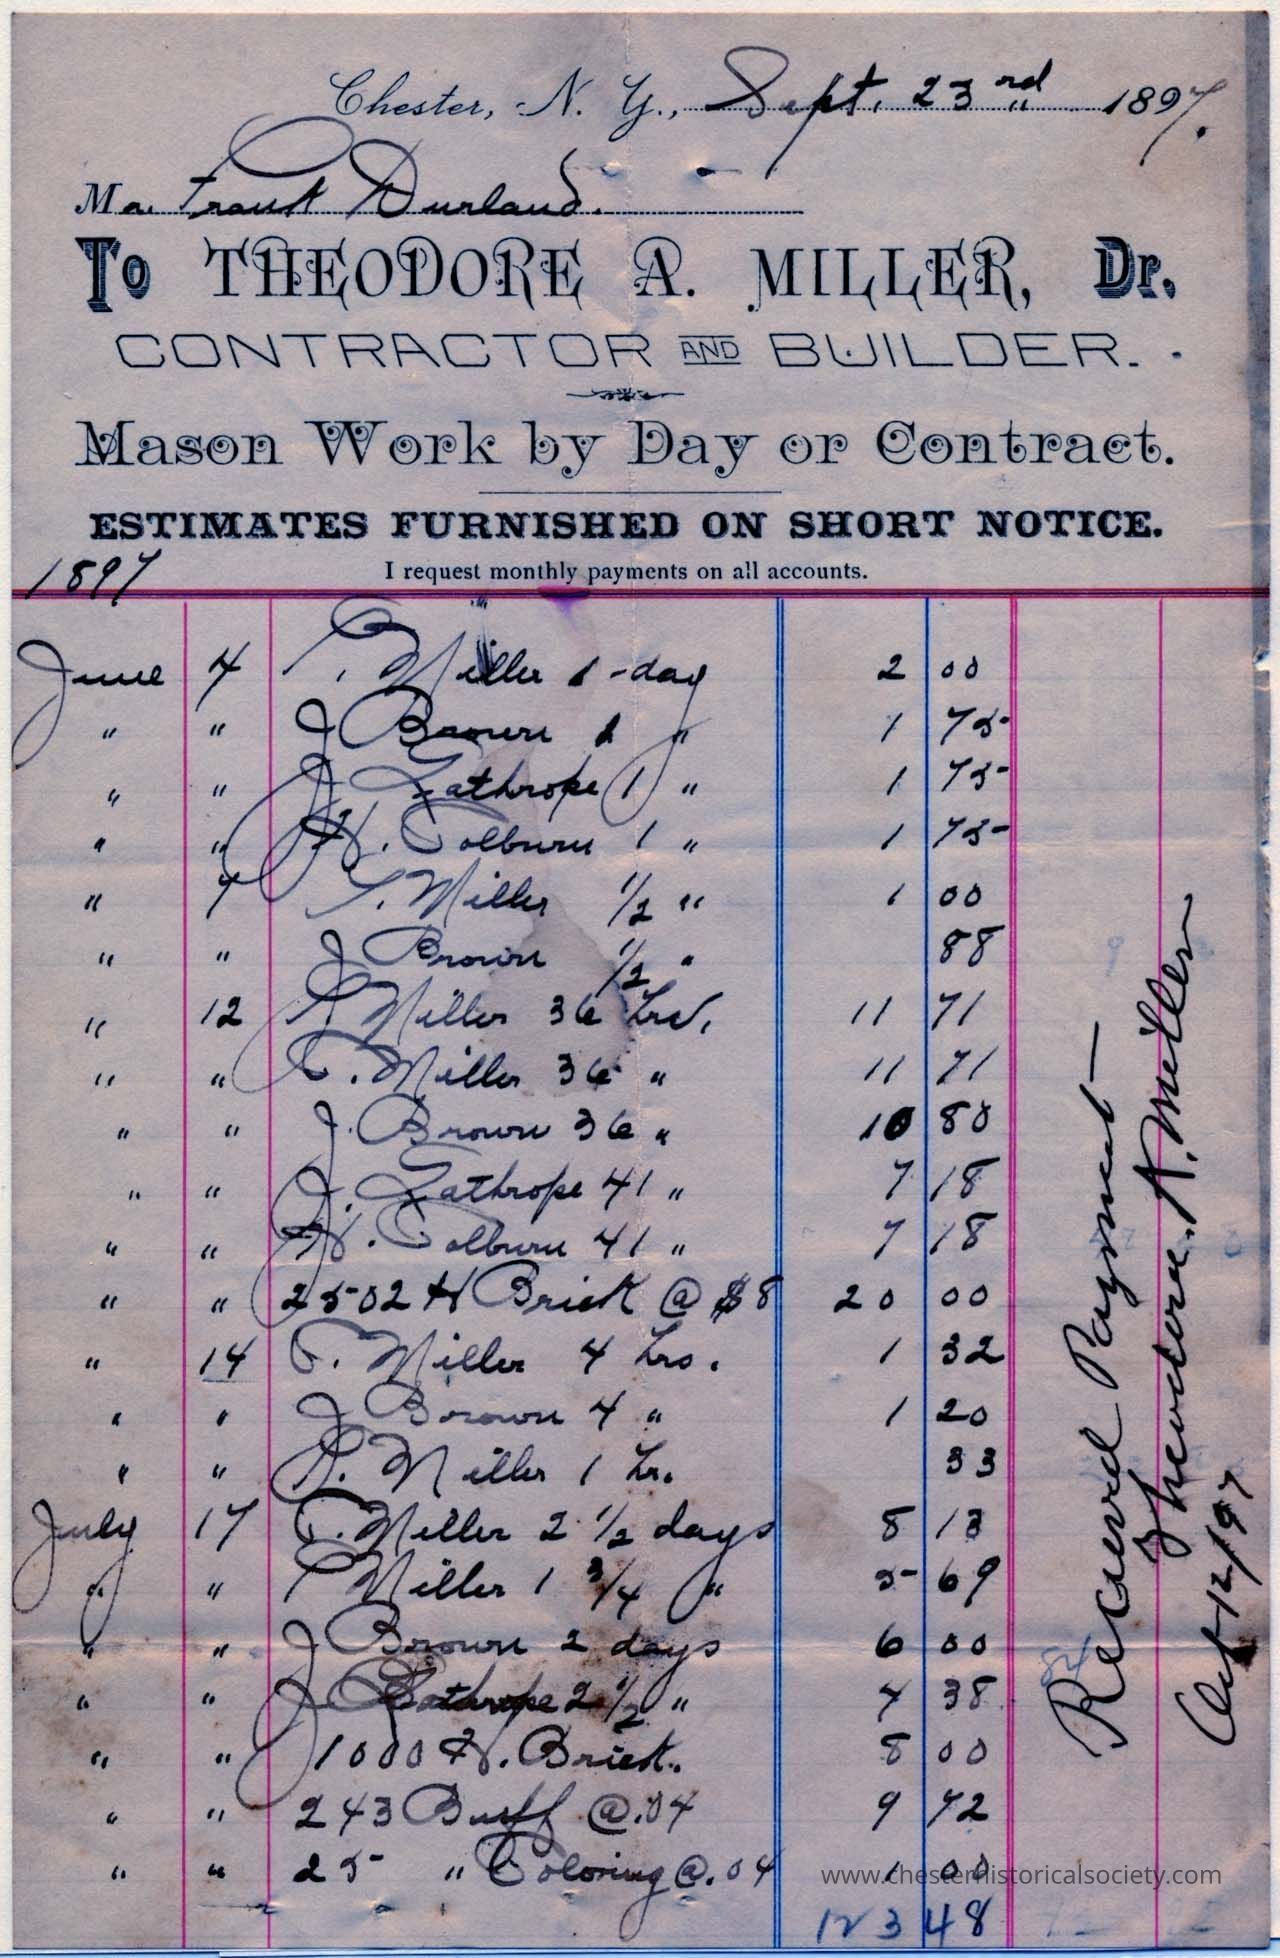 Chester, N. Y., Sept. 23rd 1897.
Mr. Frank Durland.
To THEODORE A. MILLER, Dr.
CONTRACTOR AND BUILDER.
Mason Work by Day or Contract.
ESTIMATES FURNISHED ON SHORT NOTICE.
I request monthly payments on all accounts.
1897
June 4 T. Miller 1 day 2 00
" " J Brown 1 " 1 75
" " J. Lathrope 1 " 1 75
" " H. Colburn 1 " 1 75
" 7 T. Miller 1/2 " 1 00
" " J Brown 1/2 " 88
" 12 Miller 36 hrs. 11 71
" " T. Miller 36 " 11 71
" " J. Brown 36 " 10 80
" " J. Lathrope 41 " 7 18
" " H. Colburn 41 " 7 18
" " 2502 H Brick @ $8 20 00
" 14 T. Miller 4 hrs. 1 32
" " J Brown 4 " 1 20
" " Miller 1 hr. 33
July 17 T. Miller 2 1/2 days 8 13
" " Miller 1 3/4 " 5 69
" " J Brown 2 days 6 00
" " J Lathrope 2 1/2 " 4 38
" " 1000 H. Brick. 8 00
" " 243 Buff @ .04 9 72
" " 25 " Coloring @ .04 1 00
123 48
Received Payment
Theodore A. Miller
Oct 12/97
84
www.chesterhistoricalsociety.com